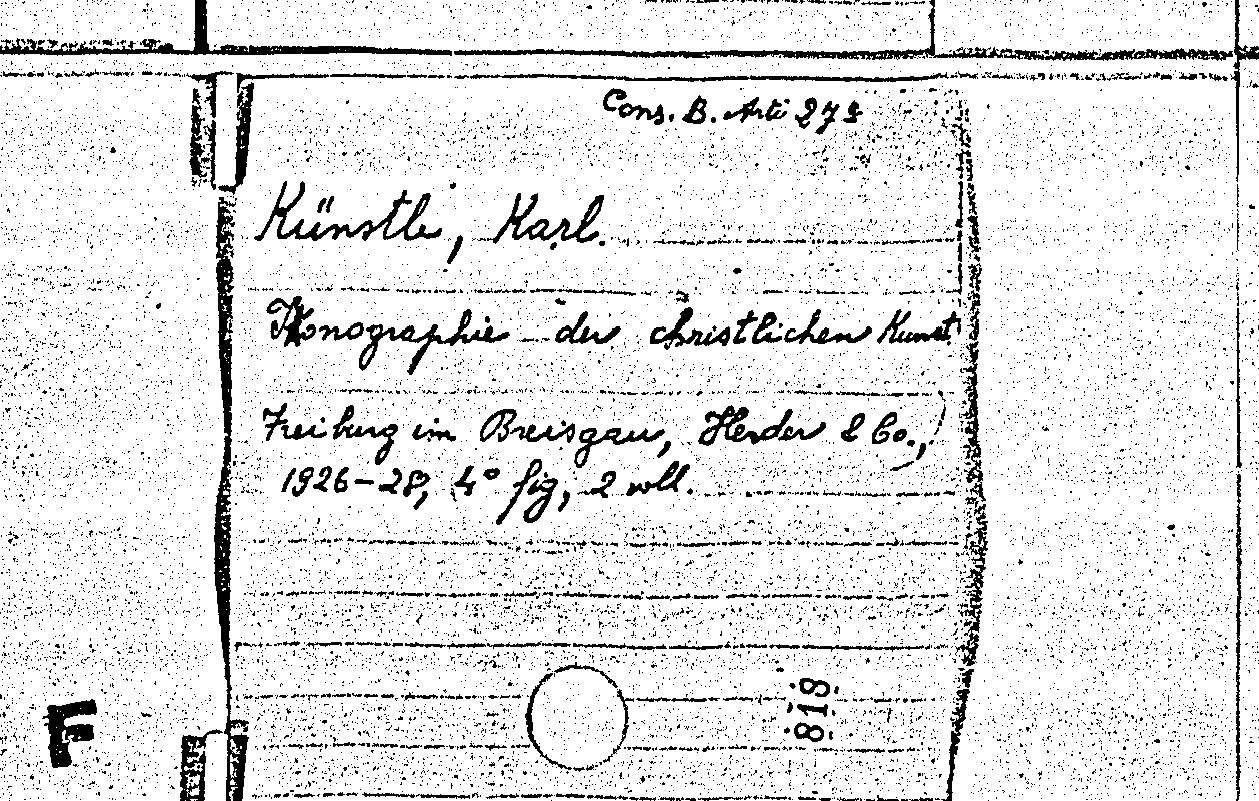 Cons. B. Arti 278
Künstle, Karl.
Ikonographie der christlichen Kunst
Freiburg im Breisgau, Herder & Co.,
1926-28, 4° fig, 2 voll.
818
F